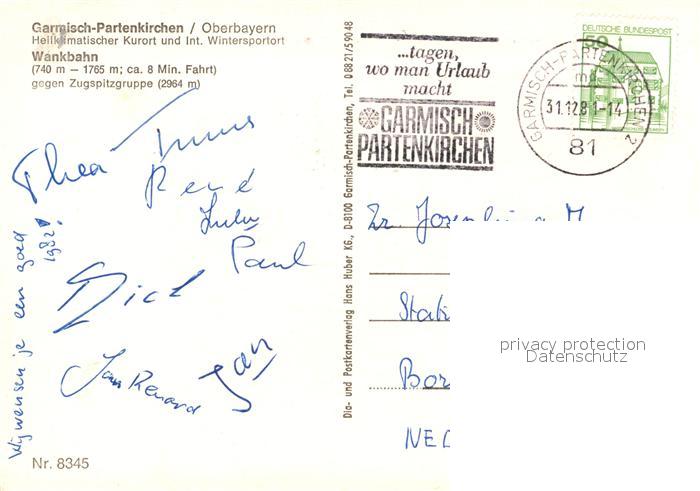 Garmisch-Partenkirchen / Oberbayern
Heilklimatischer Kurort und Int. Wintersportort
Wankbahn
(740 m — 1765 m; ca. 8 Min. Fahrt)
gegen Zugspitzgruppe (2964 m)
Thea Timus
René
Lulu
Paul
Dick
Jan
Jan Renard
Wij wensen je een goed
1982!
Nr. 8345
Dia- und Postkartenverlag Hans Huber KG., D-8100 Garmisch-Partenkirchen, Tel. 0 88 21/5 90 48
...tagen,
wo man Urlaub
macht
GARMISCH
PARTENKIRCHEN
GARMISCH-PARTENKIRCHEN 2
31.12.81-14
81
DEUTSCHE BUNDESPOST
50
Zr.
Stati
Bor
NED
privacy protection
Datenschutz